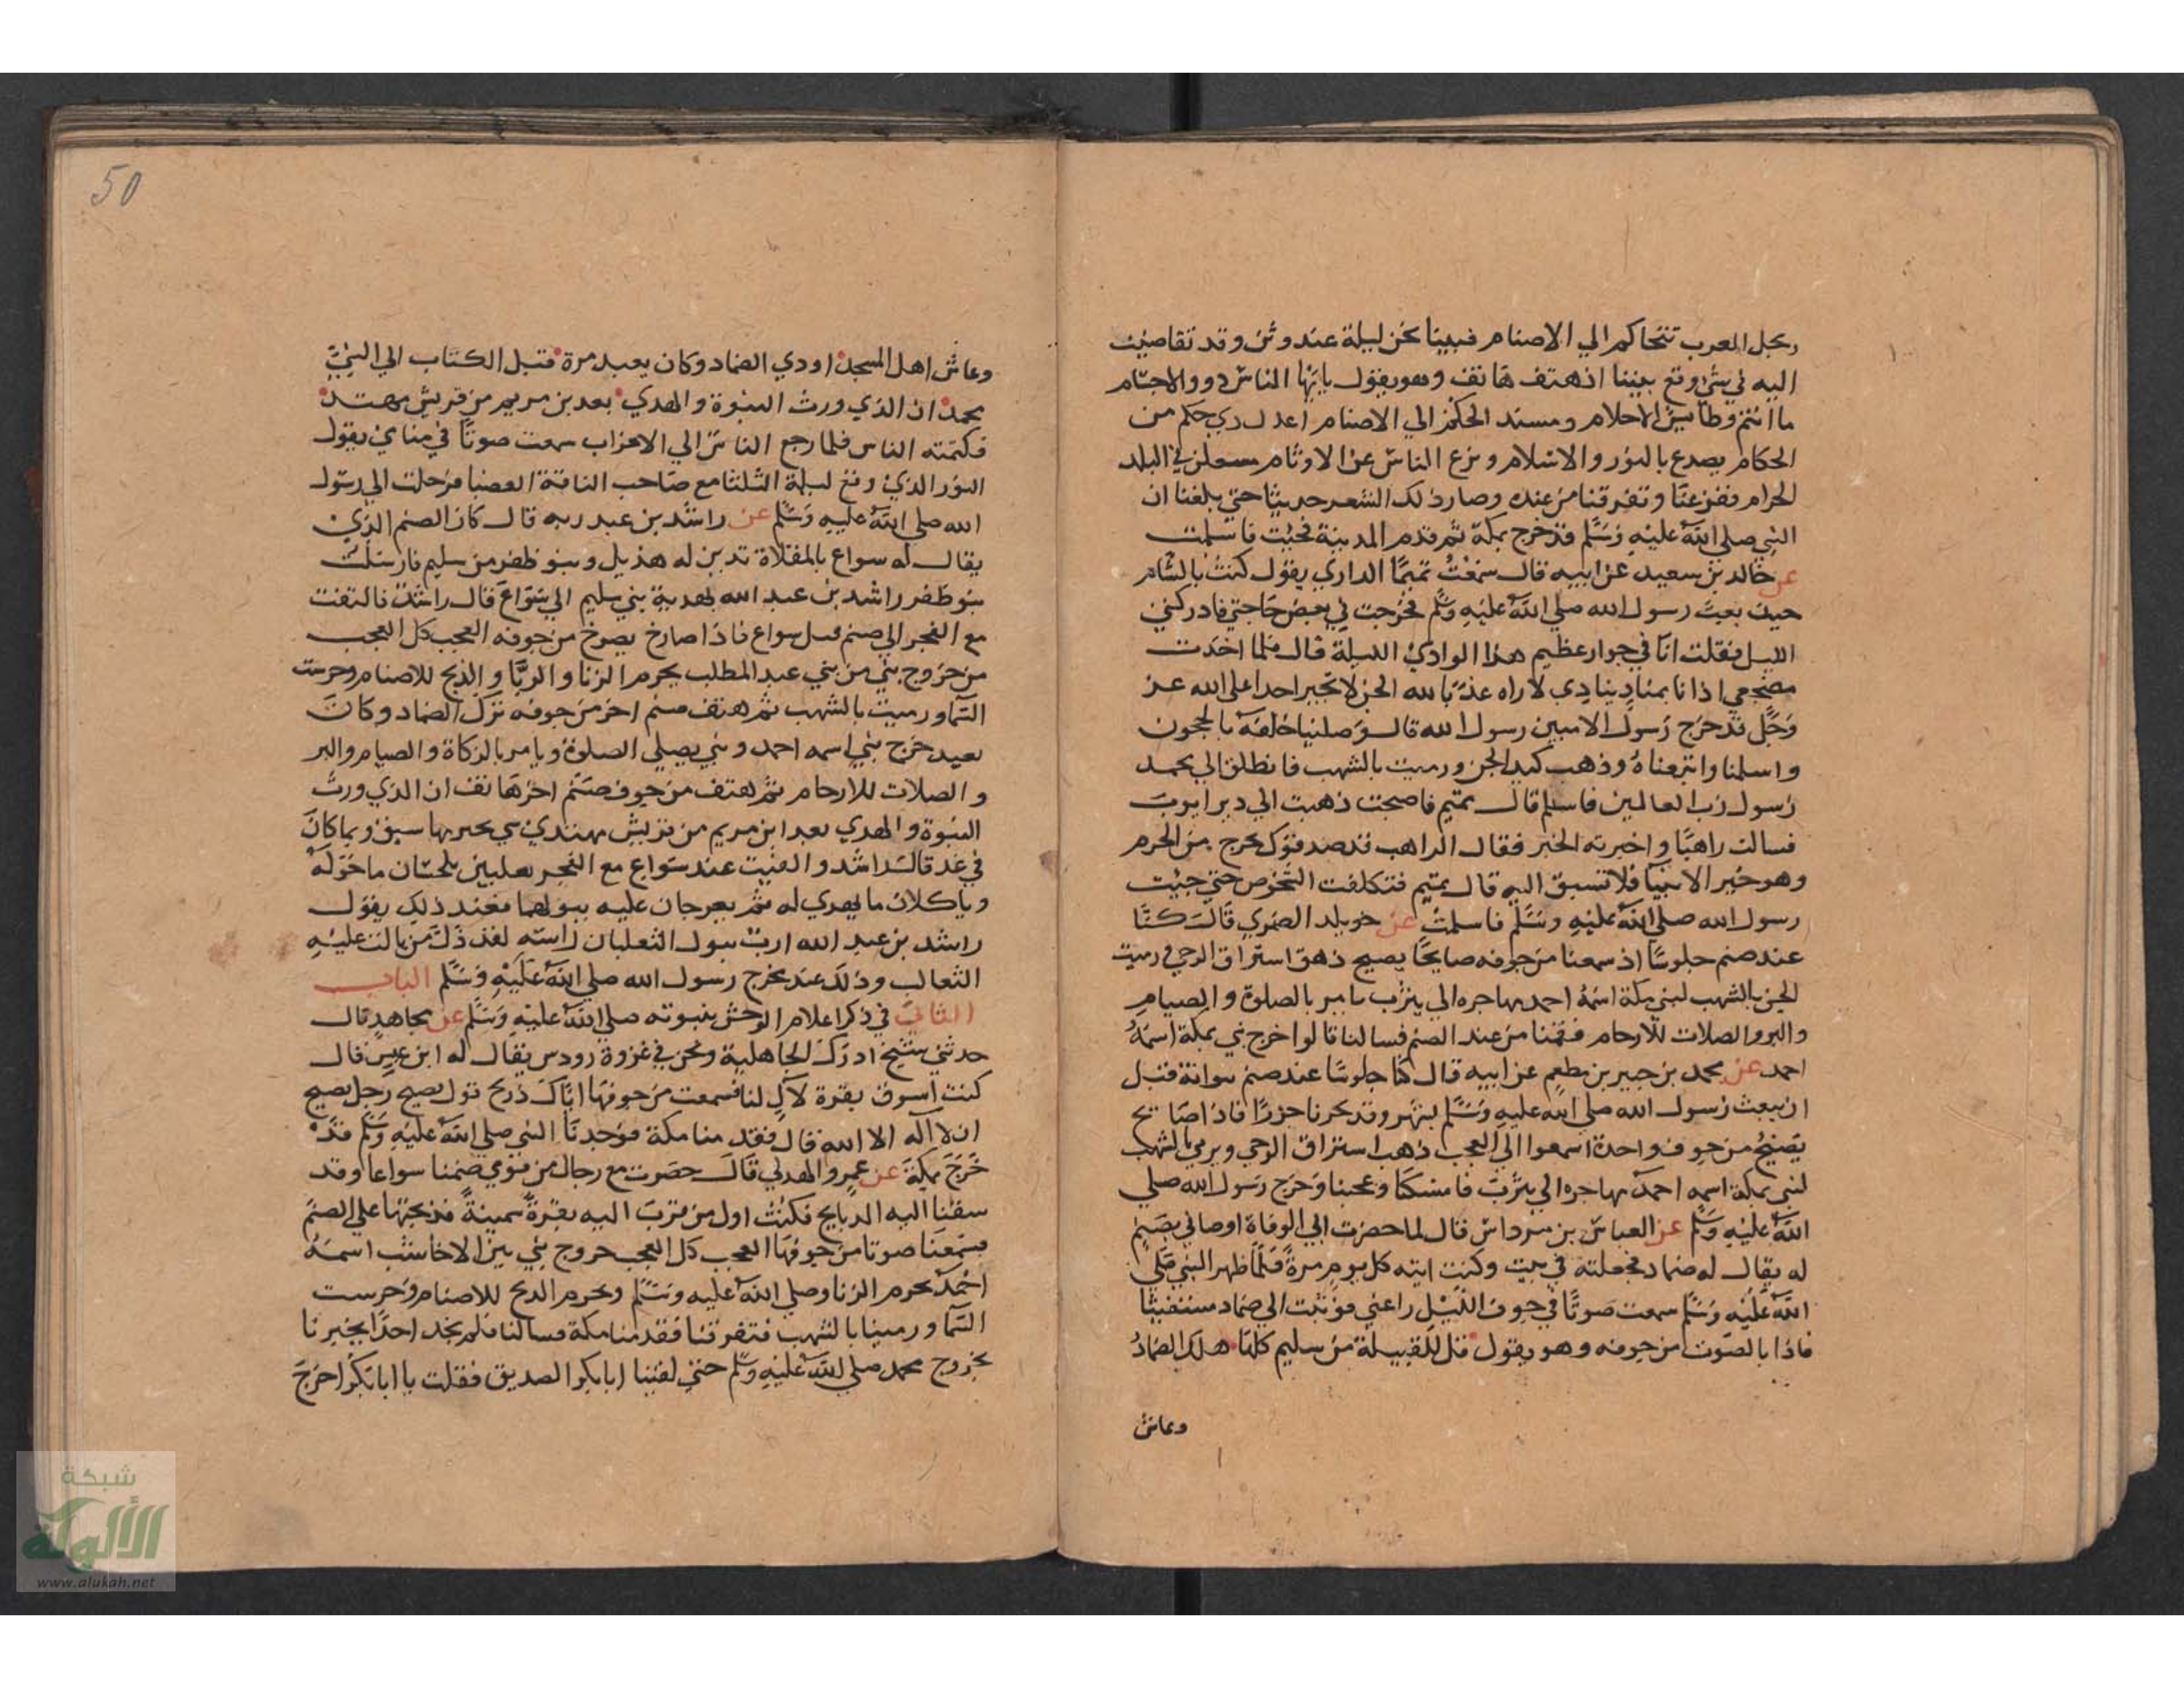 رجل العرب تتحاكم الي الاصنام فبينا نحن ليلة عند وثن وقد تقاضينا
اليه في شئ وقع بيننا اذ هتف هاتف وهو يقول يا ايها الناس ذوو الاجسام
ما انتم وطايش الاحلام ومسند الحكم الي الاصنام اعدل ذي حكم من
الحكام يصدع بالنور والاسلام ويزع الناس عن الاوثام مستعلن في البلد
الحرام ففزعنا وتفرقنا من عنده وصار ذلك الشعر حديثا حتي بلغنا ان
النبي صلي الله عليه وسلم قد خرج بمكة ثم قدم المدينة فجيت فاسلمت
عن خالد بن سعيد عن ابيه قال سمعت تميما الداري يقول كنت بالشام
حيث بعث رسول الله صلي الله عليه وسلم فخرجت في بعض حاجتي فادركني
الليل فقلت انا في جوار عظيم هذا الوادي الليلة قال فلما اخذت
مضجعي اذ انا بمناد ينادي لا راه عذ بالله الجن لا تجير احدا علي الله عز
وجل قد خرج رسول الاميين رسول الله قال وصلينا خلفه بالحجون
واسلمنا واتبعناه وذهب كيد الجن ورميت بالشهب فانطلق الي محمد
رسول رب العالمين فاسلم قال تميم فاصبحت ذهبت الي دير ايوب
فسالت راهبا واخبرته الخبر فقال الراهب قد صدقوك يخرج من الحرم
وهو خير الانبيا فلا تسبق اليه قال تميم فتكلفت الشخوص حتي جيت
رسول الله صلي الله عليه وسلم فاسلمت عن خويلد الضمري قال كنا
عند صنم جلوسا اذ سمعنا من جوفه صايحا يصيح ذهق استراق الوحي ورميت
الجن بالشهب لنبي بمكة اسمه احمد مهاجره الي يثرب يامر بالصلوة والصيام
والبر والصلات للارحام فقمنا من عند الصنم فسالنا قالوا خرج نبي بمكة اسمه
احمد عن محمد بن جبير بن مطعم عن ابيه قال كنا جلوسا عند صنم بوانة قبل
ان يبعث رسول الله صلي الله عليه وسلم بشهر وقد نحرنا جزرا فاذا صايح
يصيح من جوف واحدة اسمعوا الي العجب ذهب استراق الوحي ويرمي بالشهب
لنبي بمكة اسمه احمد مهاجره الي يثرب فامسكنا وعجبنا وخرج رسول الله صلي
الله عليه وسلم عن العباس بن مرداس قال لما حضرت ابي الوفاة اوصاني بصنم
له يقال له ضماد فجعلته في بيت وكنت اتيه كل يوم مرة فلما ظهر النبي صلي
الله عليه وسلم سمعت صوتا في جوف الليل راعني فوثبت الي ضماد مستغيثا
فاذا بالصوت من جوفه وهو يقول قل للقبيلة من سليم كلها هلك الضماد
وعاش
50
وعاش اهل المسجد اودي الضماد وكان يعبد مرة قبل الكتاب الي النبي
محمد ان الذي ورث النبوة والهدي بعد بن مريم من قريش مهتد
فكتمته الناس فلما رجع الناس الي الاحزاب سمعت صوتا في منامي يقول
النور الذي وقع ليلة الثلثا مع صاحب الناقة العضبا فرحلت الي رسول
الله صلي الله عليه وسلم عن راشد بن عبد ربه قال كان الصنم الذي
يقال له سواع بالمعلاة تدين له هذيل وبنو ظفر من سليم فارسلت
بنو ظفر راشد بن عبد الله بهدية بني سليم الي سواع قال راشد فالتفت
مع الفجر الي صنم قبل سواع فاذا صارخ يصرخ من جوفه العجب كل العجب
من خروج نبي من بني عبد المطلب يحرم الزنا والربا والذبح للاصنام وحرست
السما ورميت بالشهب ثم هتف صنم اخر من جوفه ترك الضماد وكان
يعبد خرج نبي اسمه احمد ونبي يصلي الصلوة ويامر بالزكاة والصيام والبر
والصلات للارحام ثم هتف من جوف صنم اخر هاتف ان الذي ورث
النبوة والهدي بعد ابن مريم من قريش مهتدي نبي يخبر بما سبق وبما كان
في غد قال راشد والفيت عند سواع مع الفجر ثعلبين يلحسان ما حوله
وياكلان ما يهدي له ثم يعرجان عليه ببولهما فعند ذلك يقول
راشد بن عبد الله ارب يبول الثعلبان راسه لقد ذل من بالت عليه
الثعالب وذلك عند مخرج رسول الله صلي الله عليه وسلم الباب
الثاني في ذكر اعلام الوحش بنبوته صلي الله عليه وسلم عن مجاهد قال
حدثني شيخ ادرك الجاهلية ونحن في غزوة رودس يقال له ابن عبس قال
كنت اسوق بقرة لآل لنا فسمعت من جوفها اياك ذريح قول يصيح رجل يصيح
ان لا آله الا الله قال فقدمنا مكة فوجدنا النبي صلي الله عليه وسلم قد
خرج بمكة عن عمرو الهدلي قال حضرت مع رجال من قومي صنمنا سواعا وقد
سقنا اليه الذبايح فكنت اول من قرب اليه بقرة سمينة فذبحتها علي الصنم
فسمعنا صوتا من جوفها العجب كل العجب خروج نبي بين الاخاشب اسمه
احمد يحرم الزنا وصلي الله عليه وسلم ويحرم الذبح للاصنام وحرست
السما ورمينا بالشهب فتفرقنا فقدمنا مكة فسالنا فلم نجد احدا يخبرنا
بخروج محمد صلي الله عليه وسلم حتي لقينا ابا بكر الصديق فقلت يا ابا بكر اخرج
شبكة
الألوكة
www.alukah.net